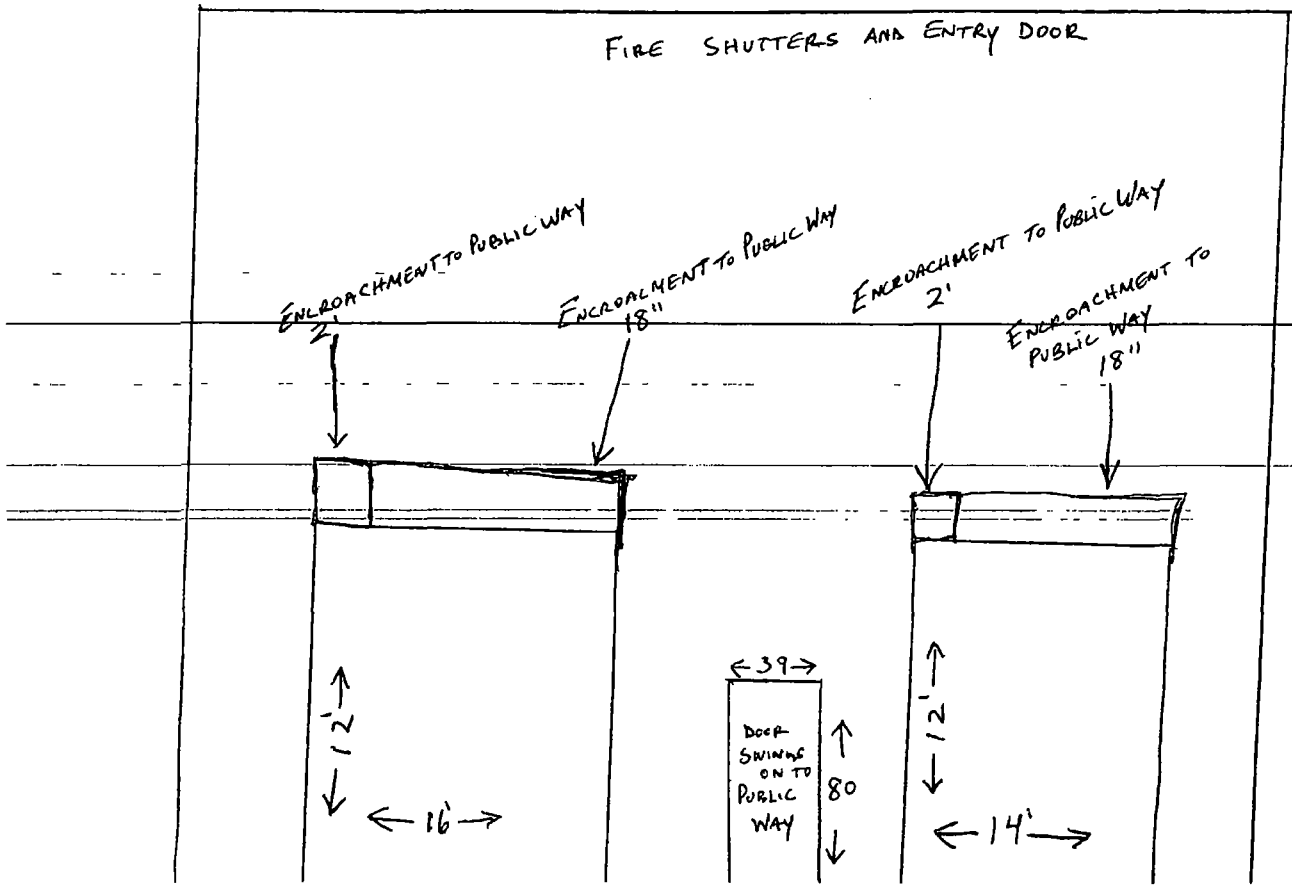 FIRE SHUTTERS AND ENTRY DOOR
ENCROACHMENT TO PUBLIC WAY
2'
ENCROALMENT TO PUBLIC WAY
18"
ENCROACHMENT TO PUBLIC WAY
2'
ENCROACHMENT TO
PUBLIC WAY
18"
12'
16'
39
DOOR
SWINGS
ON TO
PUBLIC
WAY
80
12'
14'